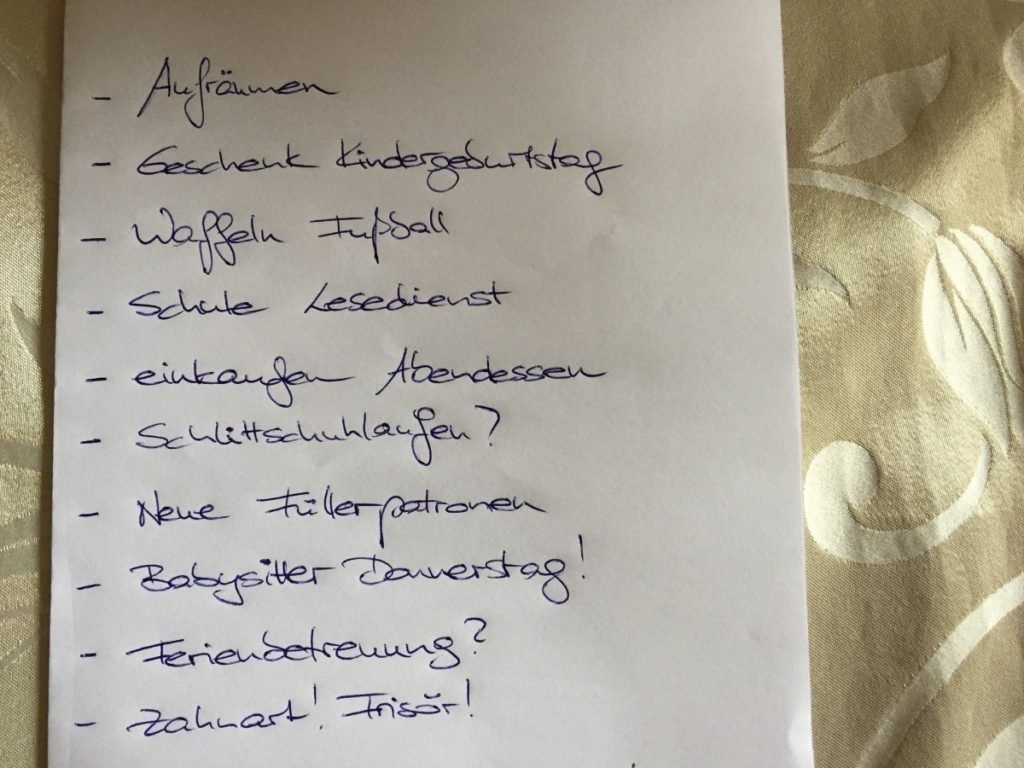 - Aufräumen
- Geschenk Kindergeburtstag
- Waffeln Fußball
- Schule Lesedienst
- einkaufen Abendessen
- Schlittschuhlaufen?
- Neue Füllerpatronen
- Babysitter Donnerstag!
- Ferienbetreuung?
- Zahnart! Frisör!